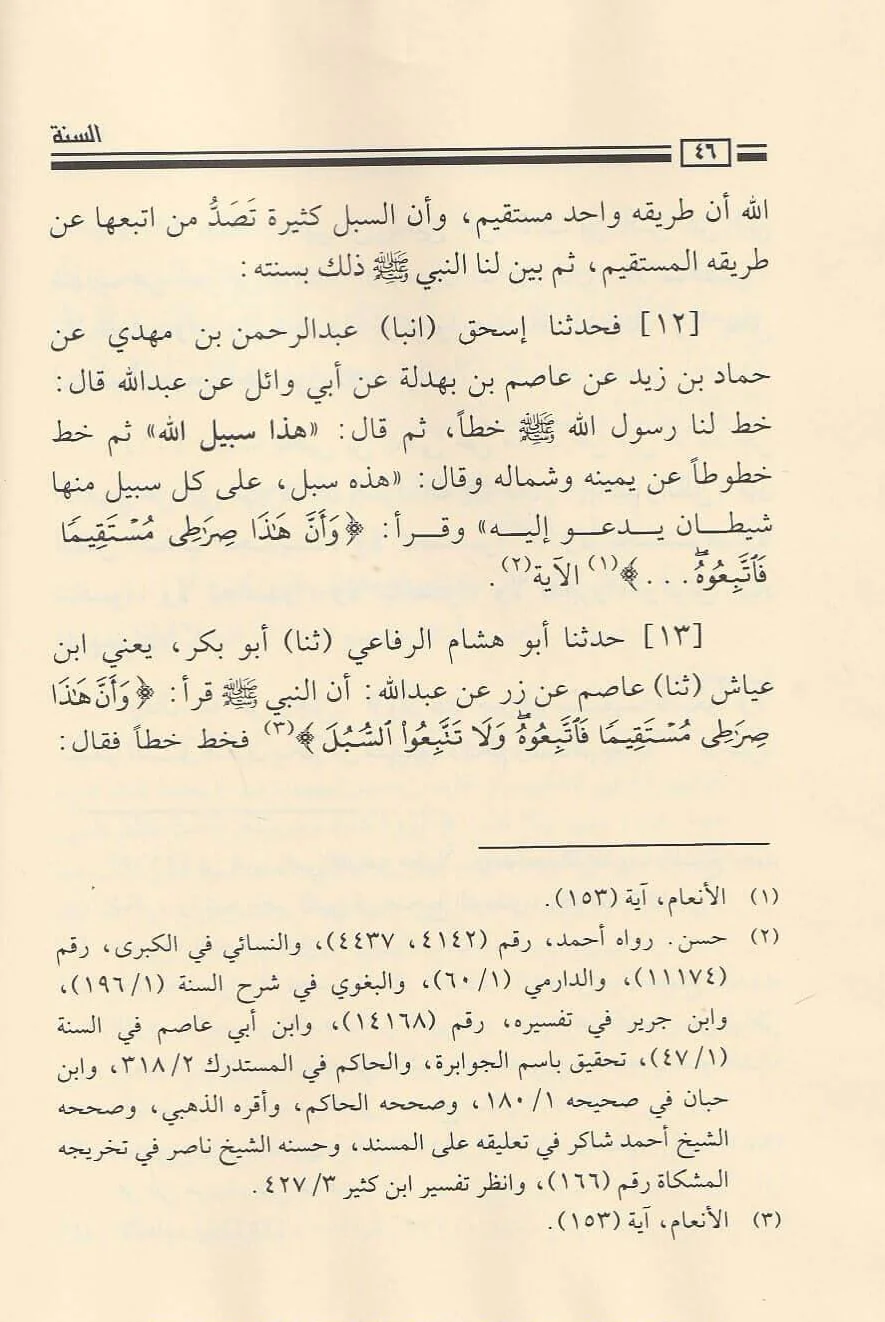 السنة
٤٦
الله أن طريقه واحد مستقيم، وأن السبل كثيرة تَصَدُّ من اتبعها عن
طريقه المستقيم، ثم بين لنا النبي ﷺ ذلك بسنته:
[١٢] فحدثنا إسحق (انبا) عبدالرحمن بن مهدي عن
حماد بن زيد عن عاصم بن بهدلة عن أبي وائل عن عبدالله قال:
خط لنا رسول الله ﷺ خطاً، ثم قال: «هذا سبيل الله» ثم خط
خطوطاً عن يمينه وشماله وقال: «هذه سبل، على كل سبيل منها
شيطان يدعو إليه» وقرأ: ﴿وَأَنَّ هَٰذَا صِرَٰطِى مُسْتَقِيمًا
فَٱتَّبِعُوهُۖ . . .﴾(١) الآية(٢).
[١٣] حدثنا أبو هشام الرفاعي (ثنا) أبو بكر، يعني ابن
عياش (ثنا) عاصم عن زر عن عبدالله: أن النبي ﷺ قرأ: ﴿وَأَنَّ هَٰذَا
صِرَٰطِى مُسْتَقِيمًا فَٱتَّبِعُوهُۖ وَلَا تَتَّبِعُوا۟ ٱلسُّبُلَ﴾(٣) فخط خطاً فقال:
(١) الأنعام، آية (١٥٣).
(٢) حسن. رواه أحمد، رقم (٤١٤٢، ٤٤٣٧)، والنسائي في الكبرى، رقم
(١١١٧٤)، والدارمي (٦٠/١)، والبغوي في شرح السنة (١٩٦/١)،
وابن جرير في تفسيره، رقم (١٤١٦٨)، وابن أبي عاصم في السنة
(٤٧/١)، تحقيق باسم الجوابرة، والحاكم في المستدرك ٣١٨/٢، وابن
حبان في صحيحه ١٨٠/١، وصححه الحاكم، وأقره الذهبي، وصححه
الشيخ أحمد شاكر في تعليقه على المسند، وحسنه الشيخ ناصر في تخريجه
المشكاة رقم (١٦٦)، وانظر تفسير ابن كثير ٤٢٧/٣.
(٣) الأنعام، آية (١٥٣).